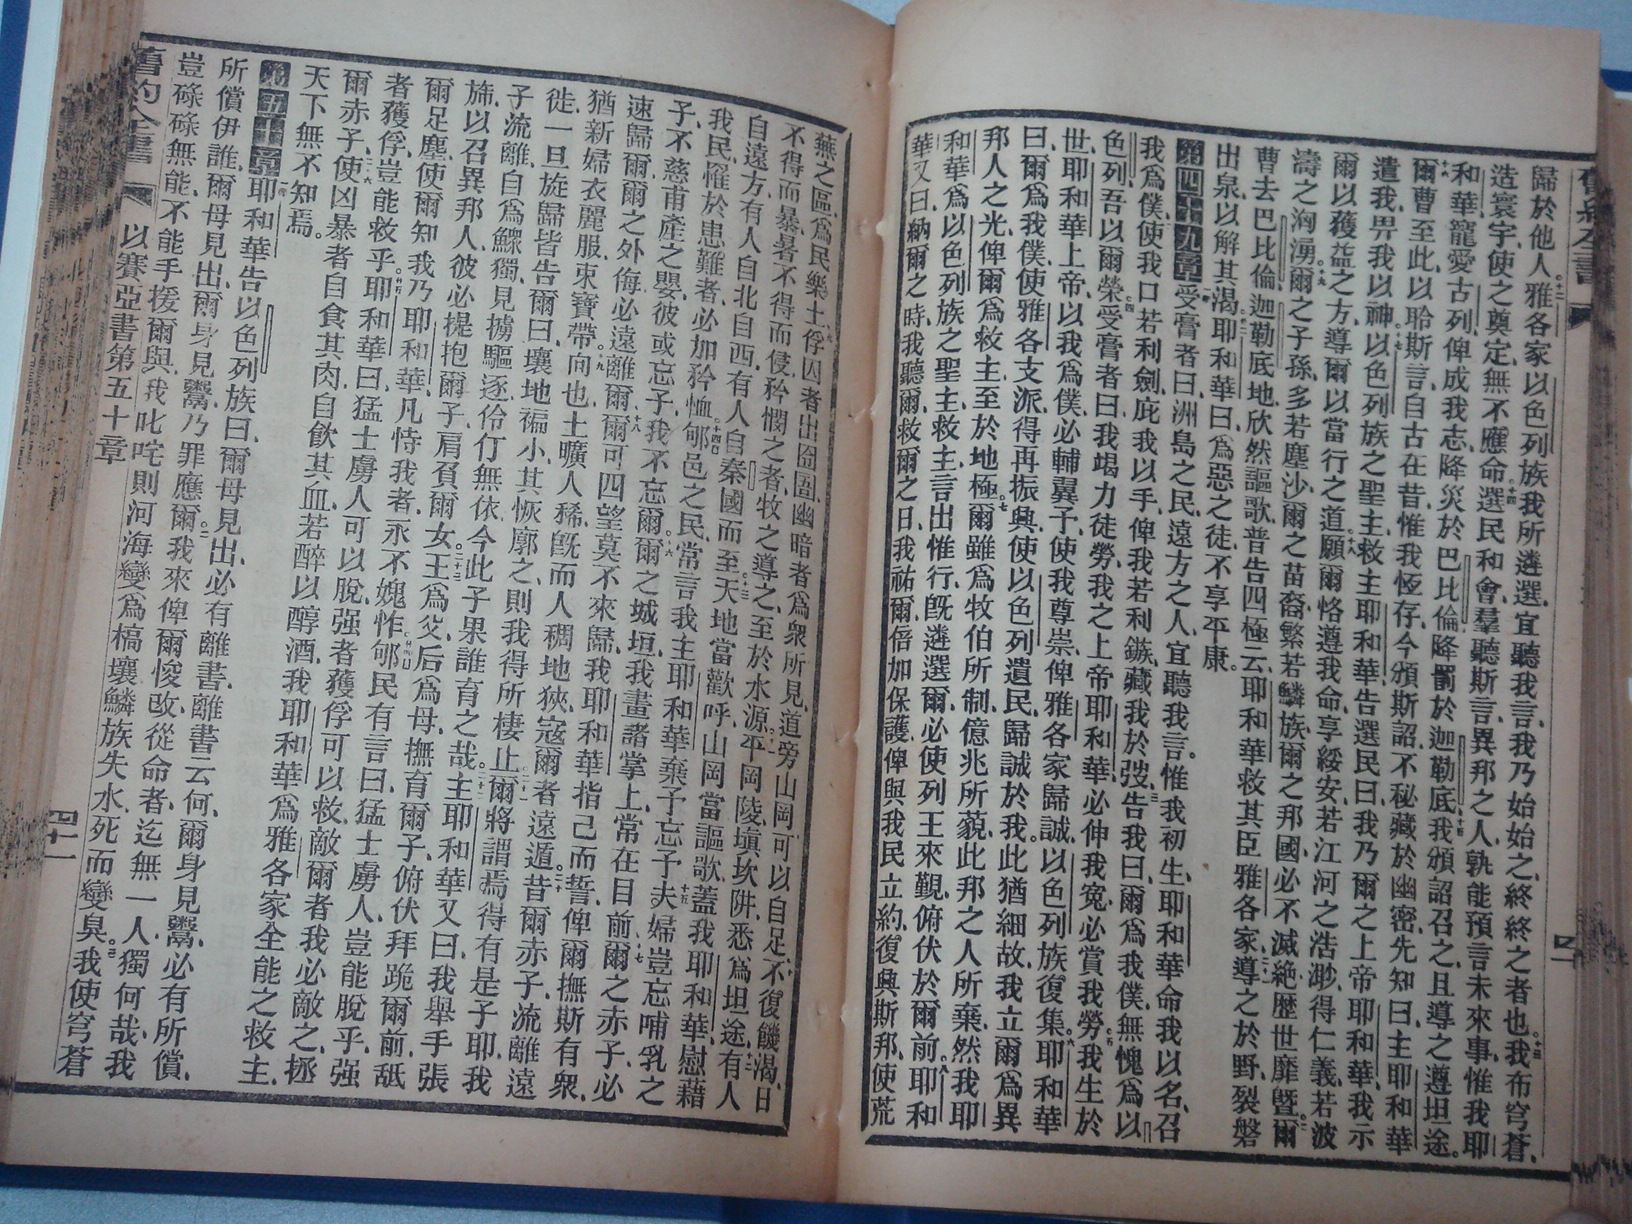 歸於他人、雅各家以色列族、我所遴選、宜聽我言、我乃始始之、終終之者也、我布穹蒼、
造寰宇、使之奠定、無不應命、選民和會、羣聽斯言、異邦之人、孰能預言未來事、惟我耶
和華、寵愛古列、俾成我志、降災於巴比倫、降罰於迦勒底、我頒詔召之、且導之遵坦途。
爾曹至此、以聆斯言、自古在昔、惟我恆存、今頒斯詔、不秘藏於幽密、先知曰、主耶和華
遣我、畀我以神、以色列族之聖主、救主耶和華告選民曰、我乃爾之上帝耶和華、我示
爾以獲益之方、導爾以當行之道、願爾恪遵我命、享綏安若江河之浩渺、得仁義、若波
濤之洶湧、爾之子孫、多若塵沙、爾之苗裔、繁若鱗族、爾之邦國、必不滅絕、歷世靡曁、爾
曹去巴比倫、迦勒底地、欣然謳歌、普告四極云、耶和華救其臣雅各家、導之於野、裂磐
出泉、以解其渴、耶和華曰、爲惡之徒、不享平康。
第四十九章 受膏者曰、洲島之民、遠方之人、宜聽我言。惟我初生、耶和華命我以名、召
我爲僕、使我口若利劍、庇我以手、俾我若利鏃、藏我於弢、告我曰、爾爲我僕、無愧爲以
色列、吾以爾榮、受膏者曰、我竭力徒勞、我之上帝耶和華、必伸我寃、必賞我勞、我生於
世、耶和華上帝、以我爲僕、必輔翼予、使我尊崇、俾雅各家歸誠、以色列族復集、耶和華
曰、爾爲我僕、使雅各支派、得再振興、使以色列遺民、歸誠於我、此猶細故、我立爾爲異
邦人之光、俾爾爲救主、至於地極、爾雖爲牧伯所制、億兆所藐、此邦之人所棄、然我耶
和華、爲以色列族之聖主、救主、言出惟行、旣遴選爾、必使列王來覲、俯伏於爾前、耶和
華又曰、納爾之時、我聽爾、救爾之日、我祐爾、倍加保護、俾與我民立約、復興斯邦、使荒
蕪之區、爲民樂土、俘囚者出囹圄、幽暗者爲衆所見、道旁山岡、可以自足、不復饑渴、日
不得而暴、暑不得而侵、矜憫之者、牧之導之、至於水源、平岡陵、塡坎阱、悉爲坦途、有人
自遠方、有人自北自西、有人自秦國而至、天地當歡呼、山岡當謳歌、蓋我耶和華慰藉
我民、罹於患難者、必加矜恤、郇邑之民、常言我主耶和華棄予忘予、夫婦豈忘哺乳之
子、不慈甫產之嬰、彼或忘予、我不忘爾、爾之城垣、我畫諸掌上、常在目前、爾之赤子、必
速歸爾、爾之外侮、必遠離爾、爾可四望、莫不來歸、我耶和華指己而誓、俾爾撫斯有衆、
猶新婦衣麗服、束寶帶、向也土曠人稀、旣而人稠地狹、寇爾者遠遁、昔爾赤子流離遠
徙、一旦旋歸、皆告爾曰、壤地褊小、其恢廓之、則我得所棲止、爾將謂焉得有是子耶、我
子流離、自爲鰥獨、見擄驅逐、伶仃無依、今此子果誰育之哉、主耶和華又曰、我舉手張
旆、以召異邦人、彼必提抱爾子、肩負爾女、王爲父、后爲母、撫育爾子、俯伏拜跪爾前、舐
爾足塵、使爾知我乃耶和華、凡恃我者、永不媿怍、郇民有言曰、猛士虜人、豈能脫乎、强
者獲俘、豈能救乎、耶和華曰、猛士虜人、可以脫、强者獲俘、可以救、敵爾者我必敵之、拯
爾赤子、使凶暴者自食其肉、自飮其血、若醉以醇酒、我耶和華爲雅各家全能之救主、
天下無不知焉。
第五十章 耶和華告以色列族曰、爾母見出、必有離書、離書云何、爾身見鬻、必有所償、
所償伊誰、爾母見出、爾身見鬻、乃罪應爾、我來俾爾悛改、從命者迄無一人、獨何哉、我
豈碌碌無能、不能手援爾與、我叱咤則河海變爲槁壤、鱗族失水、死而變臭、我使穹蒼
舊約全書 以賽亞書第五十章 四十一